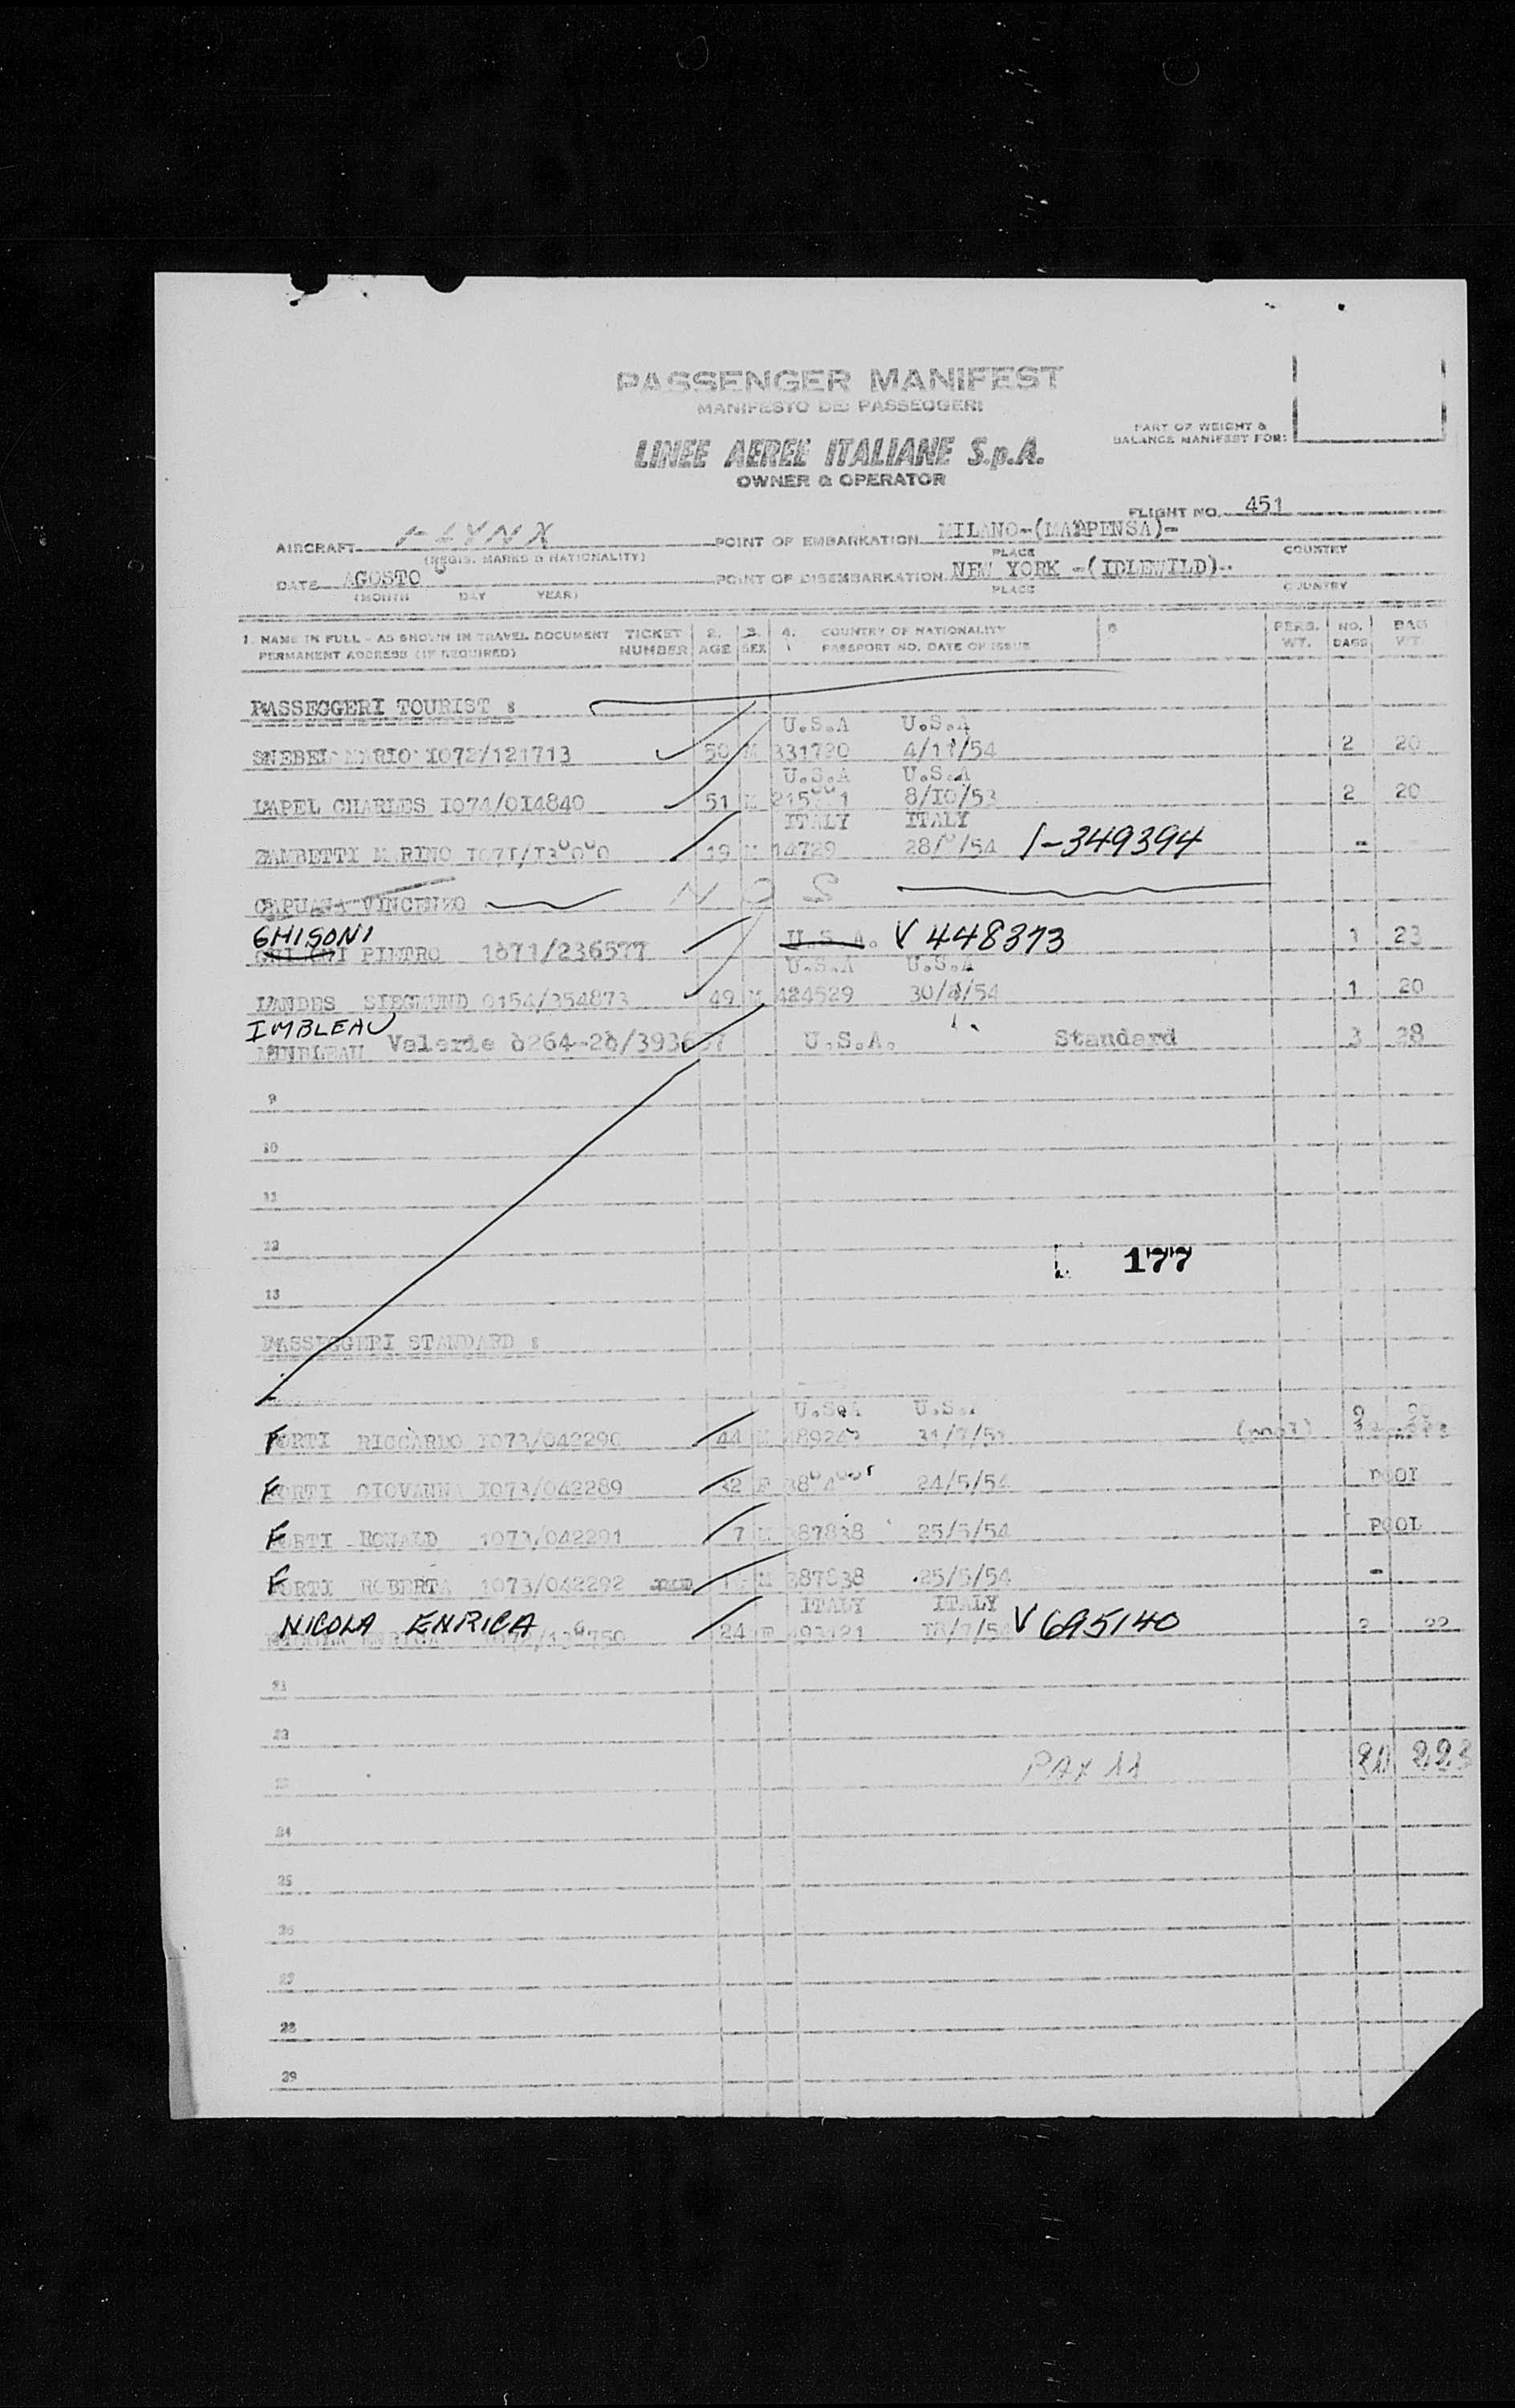 PASSENGER MANIFEST
MANIFESTO DEI PASSEGGERI
PART OF WEIGHT &
BALANCE MANIFEST FOR:
LINEE AEREE ITALIANE S.p.A.
OWNER & OPERATOR
FLIGHT NO. 451
AIRCRAFT I-LYNX POINT OF EMBARKATION MILANO-(MALPENSA)-
(REGIS. MARKS & NATIONALITY) PLACE COUNTRY
DATE AGOSTO POINT OF DISEMBARKATION NEW YORK -(IDLEWILD)-
(MONTH DAY YEAR) PLACE COUNTRY
1. NAME IN FULL - AS SHOWN IN TRAVEL DOCUMENT TICKET 2. 3. 4. COUNTRY OF NATIONALITY PERS. NO. BAG
PERMANENT ADDRESS (IF REQUIRED) NUMBER AGE SEX PASSPORT NO. DATE OF ISSUE WT. BAGS WT
PASSEGGERI TOURIST :
U.S.A U.S.A
MARIO 1072/121713 50 M 331720 4/11/54 2 20
U.S.A U.S.A
LAPEL CHARLES 1074/014840 51 M 8/10/53 2 20
ITALY ITALY
ZAMBETTI MARINO 19 M 14729 1-349394 -
CAPUANA VINCENZO N O S
GHISONI
PIETRO 1071/236577 U.S.A. V 448373 1 23
U.S.A U.S.A
LANDES SIEGMUND 0154/354873 49 M 424529 30/4/54 1 20
IMBLEAU
Valerie U.S.A. Standard 3 28
9
10
11
12
177
13
PASSEGGERI STANDARD :
U.S.A U.S.A
FORTI RICCARDO 1073/042290 44 M (pool)
FORTI GIOVANNA 1073/042289 32 F 24/5/54 POOL
FORTI RONALD 1073/042291 7 M 387838 25/5/54 POOL
FORTI ROBERTA 1073/042292 M 387838 25/5/54 -
ITALY ITALY
NICOLA ENRICA 24 F V 695140 2 22
21
PAX 11 223
24
25
26
27
28
29